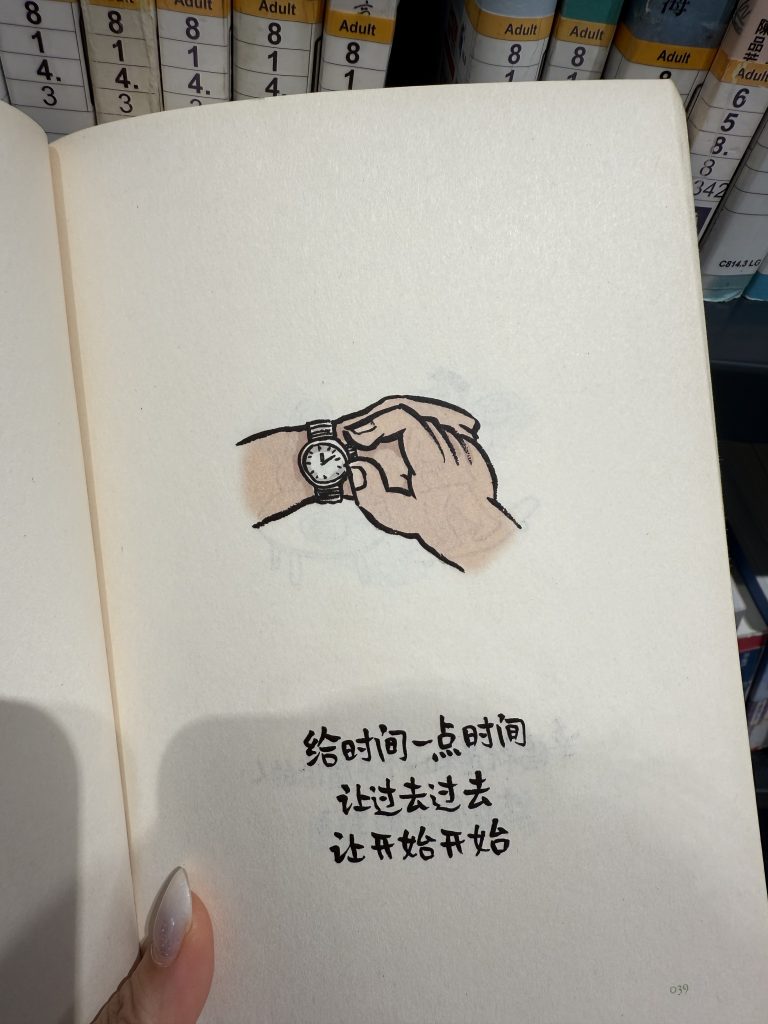 8
1
4.
3
8
1
4.
3
Adult
8
1
4.
Adult
8
1
4.
Adult
8
1
Adult
8
1
Adult
8
Adult
Adult
6
5
8.
8
342
C814.3 LG
给时间一点时间
让过去过去
让开始开始
039